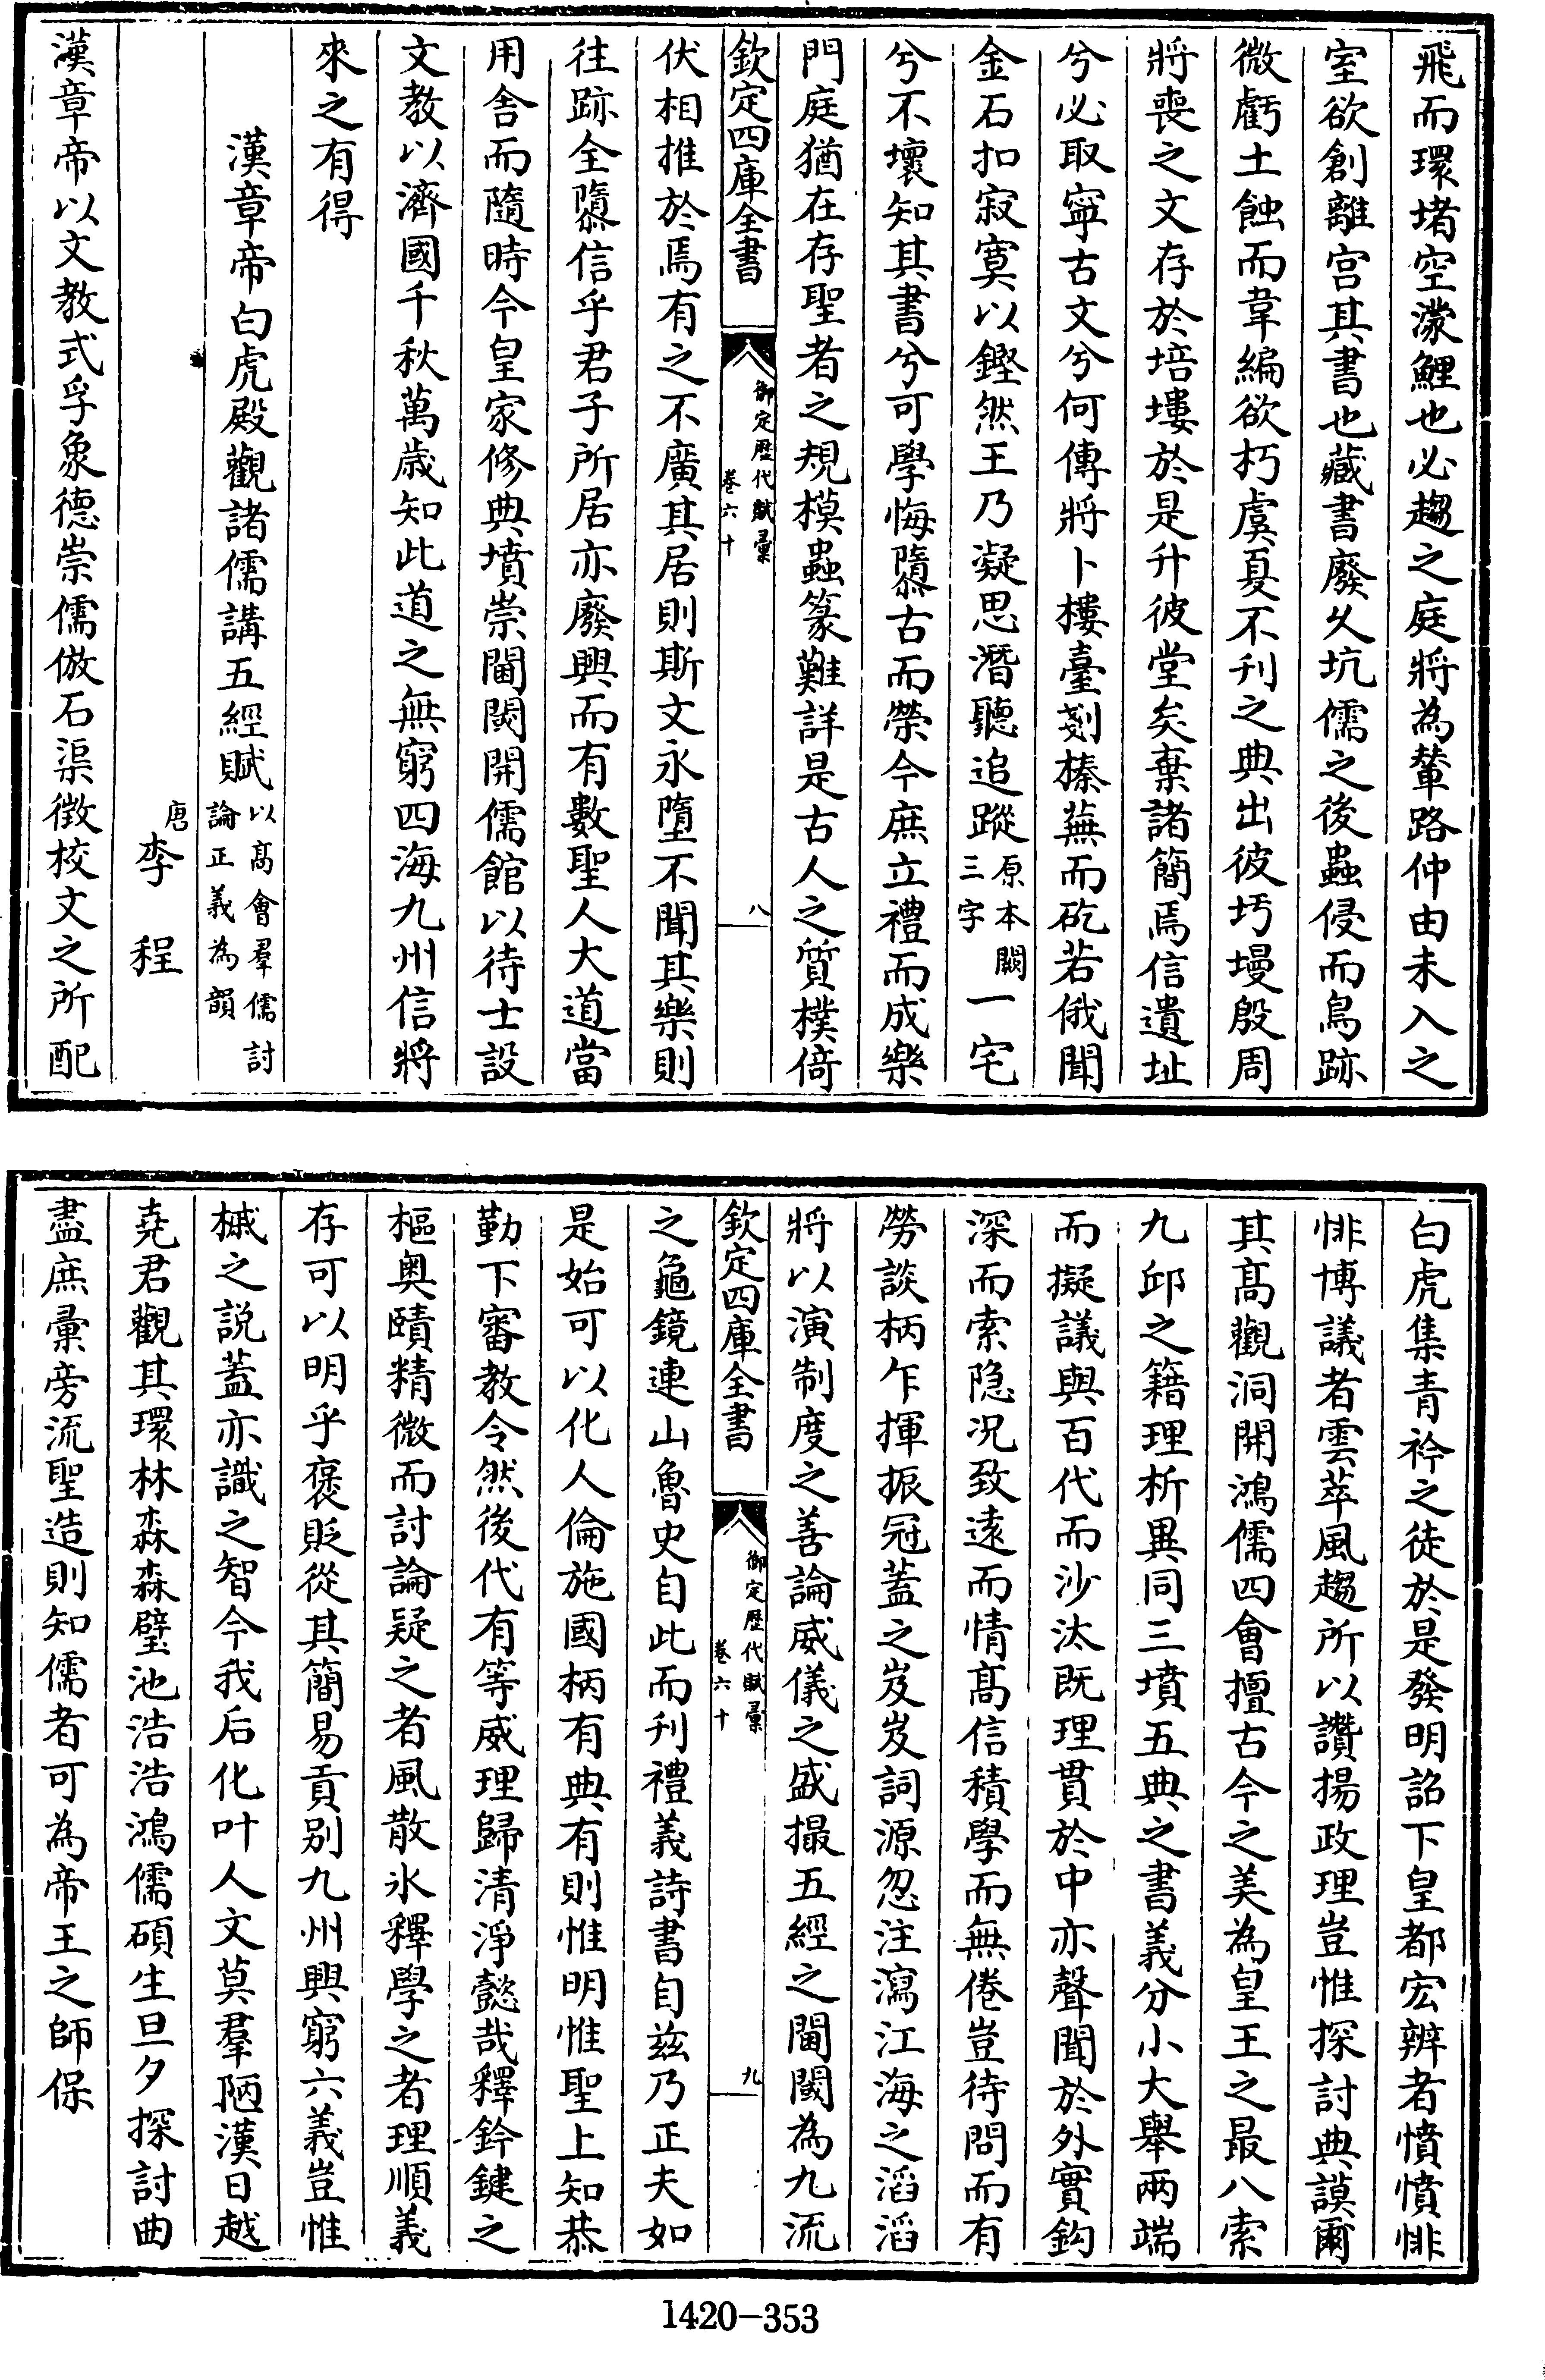 飛而環堵空濛鯉也必趨之庭將為輦路仲由未入之
室欲創離宫其書也藏書廢久坑儒之後蟲侵而鳥跡
微虧土蝕而韋編欲朽虞夏不刋之典出彼圬墁殷周
將喪之文存於培塿於是升彼堂矣棄諸簡焉信遺址
兮必取寧古文兮何傳將卜樓臺剗榛蕪而矻若俄聞
金石扣寂寞以鏗然王乃凝思潛聽追蹤原本闕三字一宅
兮不壞知其書兮可學悔隳古而榮今庶立禮而成樂
門庭猶在存聖者之規模蟲篆難詳是古人之質樸倚
欽定四庫全書
御定歴代賦彙
卷六十
八
伏相推於焉有之不廣其居則斯文永墮不聞其樂則
往跡全隳信乎君子所居亦廢興而有數聖人大道當
用舎而隨時今皇家修典墳崇閫閾開儒館以待士設
文教以濟國千秋萬歲知此道之無窮四海九州信將
來之有得
漢章帝白虎殿觀諸儒講五經賦以髙會羣儒討論正義為韻
唐李程
漢章帝以文教式孚象德崇儒倣石渠徴校文之所配
白虎集青衿之徒於是發明詔下皇都宏辨者憤憤悱
悱博議者雲萃風趨所以讚揚政理豈惟探討典謨爾
其髙觀洞開鴻儒四會擅古今之美為皇王之最八索
九邱之籍理析異同三墳五典之書義分小大舉兩端
而擬議與百代而沙汰既理貫於中亦聲聞於外實鈎
深而索隐况致遠而情髙信積學而無倦豈待問而有
勞談柄乍揮振冠蓋之岌岌詞源忽注瀉江海之滔滔
將以演制度之善論威儀之盛撮五經之閫閾為九流
欽定四庫全書
御定歴代賦彙
卷六十
九
之龜鏡連山魯史自此而刋禮義詩書自兹乃正夫如
是始可以化人倫施國柄有典有則惟明惟聖上知恭
勤下審教令然後代有等威理歸清淨懿哉釋鈐鍵之
樞奥賾精微而討論疑之者風散氷釋學之者理順義
存可以明乎褒貶從其簡易貢别九州興窮六義豈惟
槭之説蓋亦識之智今我后化叶人文莫羣陋漢日越
堯君觀其環林森森璧池浩浩鴻儒碩生旦夕探討曲
盡庶彙旁流聖造則知儒者可為帝王之師保
1420-353